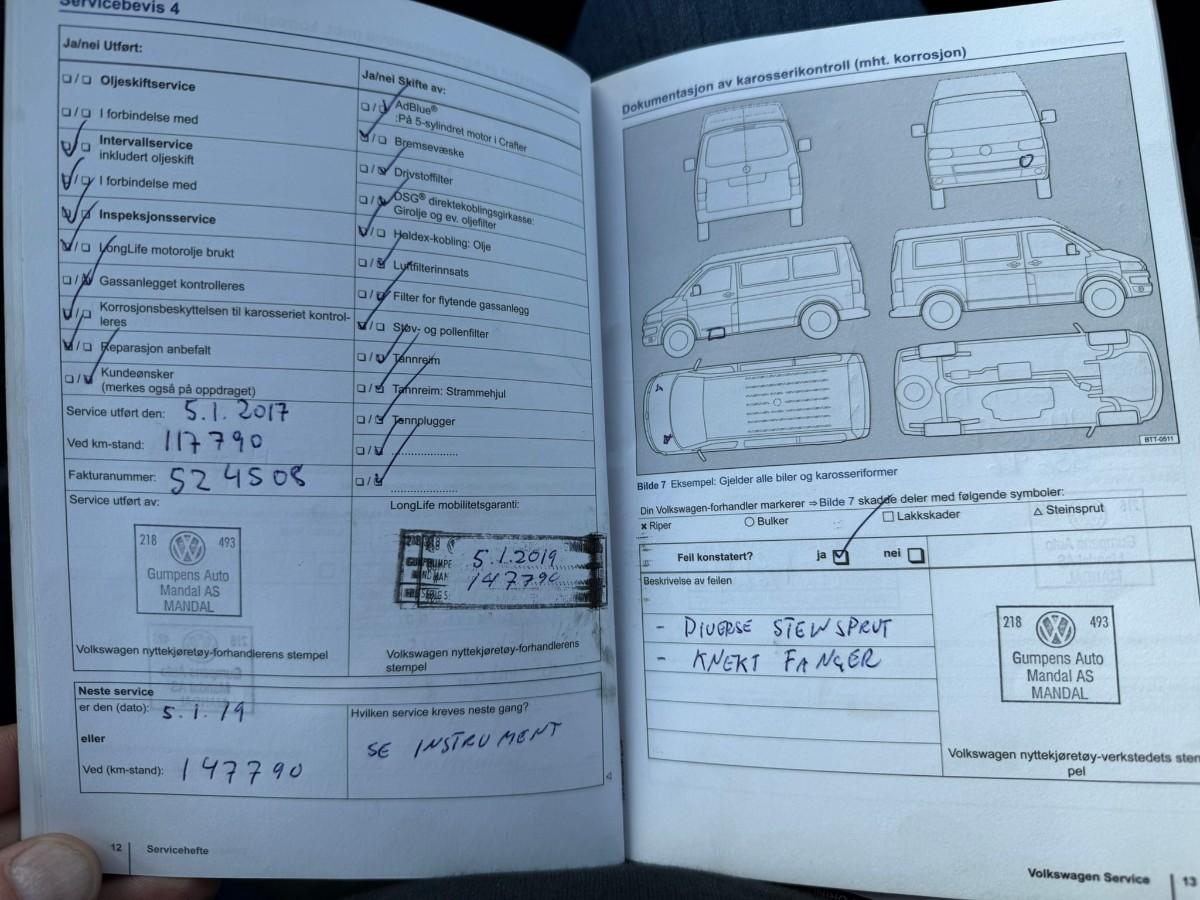 Servicebevis 4
Ja/nei Utført:
Oljeskiftservice
I forbindelse med
Intervallservice
inkludert oljeskift
I forbindelse med
Inspeksjonsservice
LongLife motorolje brukt
Gassanlegget kontrolleres
Korrosjonsbeskyttelsen til karosseriet kontrol-
leres
Reparasjon anbefalt
Kundeønsker
(merkes også på oppdraget)
Service utført den: 5.1.2017
Ved km-stand: 117790
Fakturanummer: 524508
Ja/nei Skifte av:
AdBlue®
:På 5-sylindret motor i Crafter
Bremsevæske
Drivstoffilter
DSG® direktekoblingsgirkasse:
Girolje og ev. oljefilter
Haldex-kobling: Olje
Luftfilterinnsats
Filter for flytende gassanlegg
Støv- og pollenfilter
Tannreim
Tannreim: Strammehjul
Tennplugger
....................
....................
Service utført av:
218 493
Gumpens Auto
Mandal AS
MANDAL
Volkswagen nyttekjøretøy-forhandlerens stempel
LongLife mobilitetsgaranti:
5.1.2019
147790
Volkswagen nyttekjøretøy-forhandlerens
stempel
Neste service
er den (dato): 5.1.19
eller
Ved (km-stand): 147790
Hvilken service kreves neste gang?
SE INSTRUMENT
12 Servicehefte
Dokumentasjon av karosserikontroll (mht. korrosjon)
BTT-0511
Bilde 7 Eksempel: Gjelder alle biler og karosseriformer
Din Volkswagen-forhandler markerer ⇒ Bilde 7 skadde deler med følgende symboler:
× Riper ○ Bulker □ Lakkskader △ Steinsprut
Feil konstatert? ja nei
Beskrivelse av feilen
- DIVERSE STEINSPRUT
- KNEKT FANGER
218 493
Gumpens Auto
Mandal AS
MANDAL
Volkswagen nyttekjøretøy-verkstedets stem
pel
Volkswagen Service 13